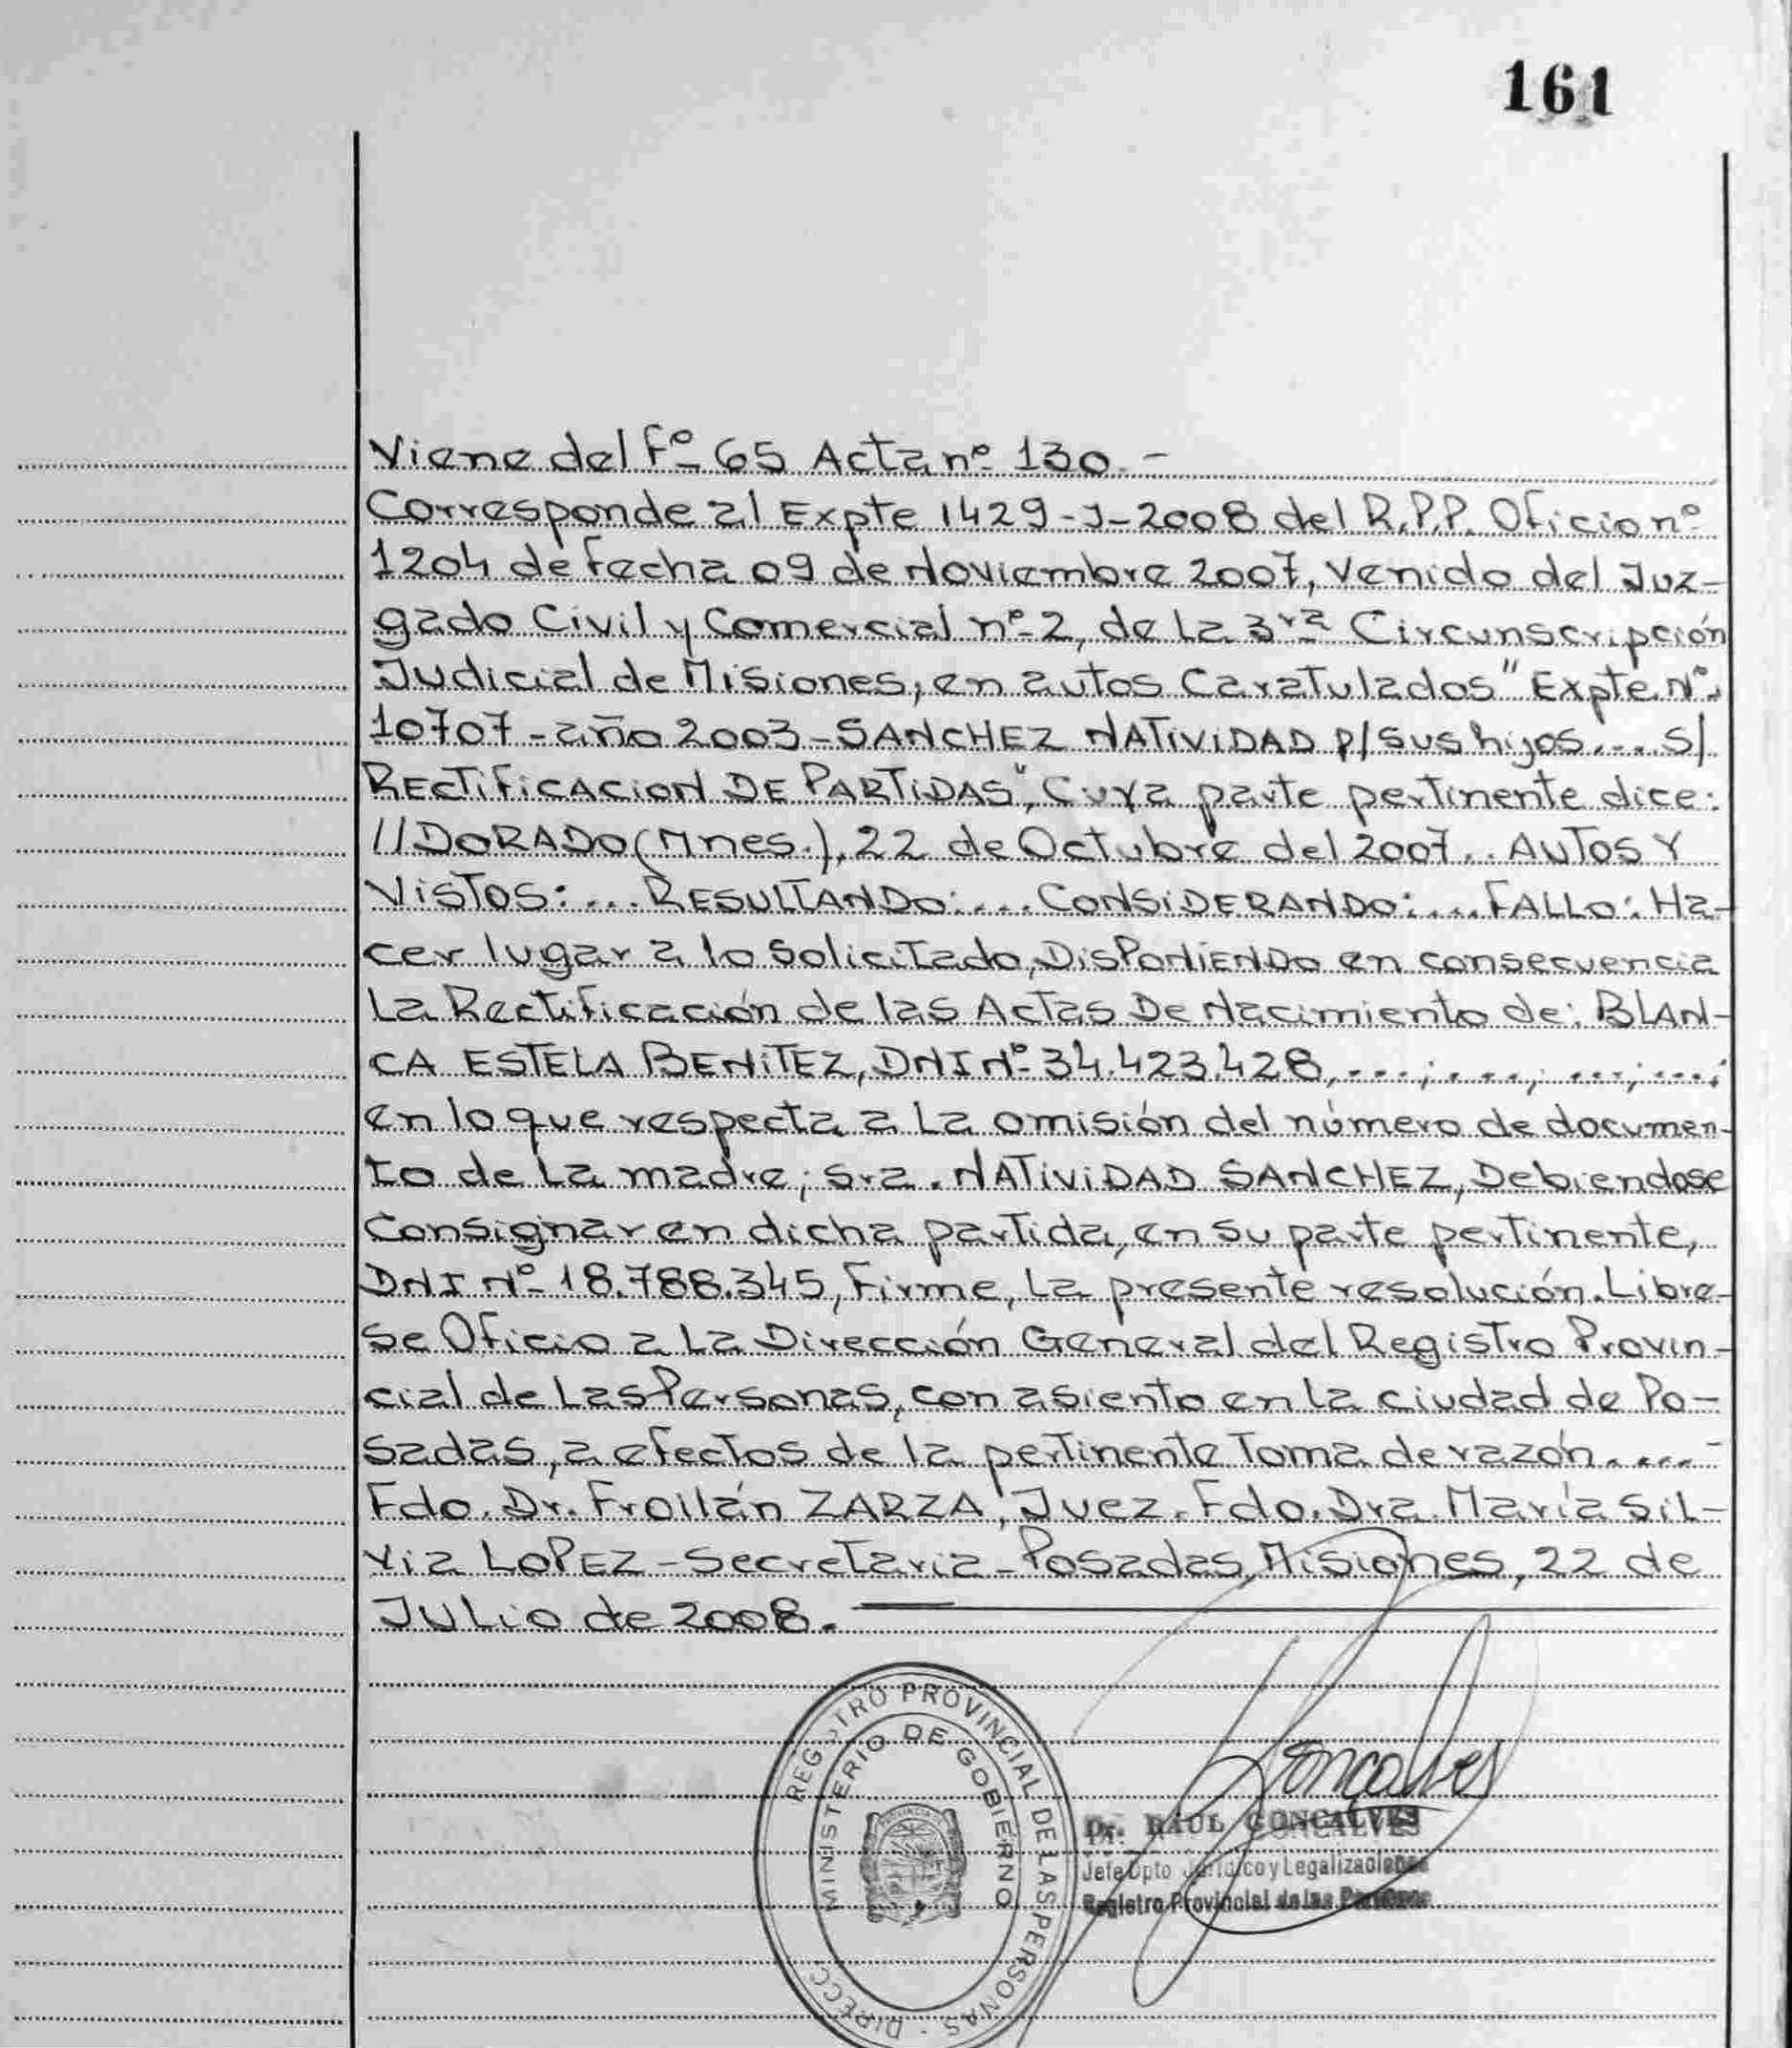 161
Viene del Fº 65 Acta nº 130.-
Corresponde al Expte 1429-J-2008 del R.P.P. Oficio nº
1204 de fecha 09 de Noviembre 2007, Venido del Juz-
gado Civil y Comercial nº 2, de la 3ra Circunscripción
Judicial de Misiones, en autos Caratulados "Expte. Nº
10707-año 2003-SANCHEZ NATIVIDAD p/sus hijos.... s/
RECTIFICACION DE PARTIDAS", Cuya parte pertinente dice:
//DORADO (Mnes.), 22 de Octubre del 2007.. AUTOS Y
VISTOS:... RESULTANDO:... CONSIDERANDO:... FALLO: Ha-
cer lugar a lo solicitado, DISPONIENDO en consecuencia
la Rectificación de las Actas De Nacimiento de: BLAN-
CA ESTELA BENITEZ, DNI Nº 34.423.428, ...; ...; ...; ...;
en lo que respecta a la omisión del número de documen-
to de la madre; sra. NATIVIDAD SANCHEZ, Debiendose
Consignar en dicha partida, en su parte pertinente,
DNI Nº 18.788.345, Firme, la presente resolución. Libre-
se Oficio a la Dirección General del Registro Provin-
cial de las Personas, con asiento en la ciudad de Po-
sadas, a efectos de la pertinente Toma de razón....-
Fdo. Dr. Froilán ZARZA, Juez. Fdo. Dra. María Sil-
via LOPEZ-Secretaria-Posadas, Misiones, 22 de
Julio de 2008.
REGISTRO PROVINCIAL DE LAS PERSONAS - DIRECC
MINISTERIO DE GOBIERNO
Goncalves
Dr. RAUL GONCALVES
Jefe Dpto Jurídico y Legalizaciones
Registro Provincial de las Personas